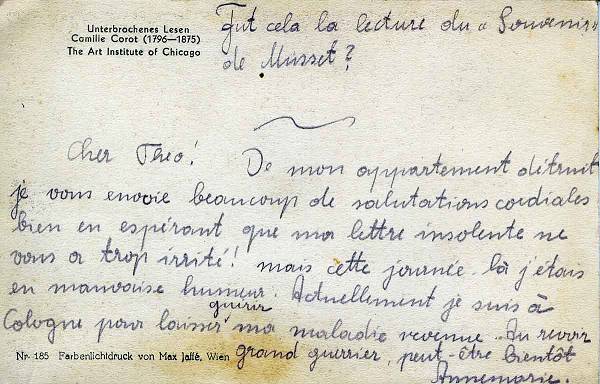 Unterbrochenes Lesen
Camille Corot (1796—1875)
The Art Institute of Chicago
Fut cela la lecture du « Souvenir »
de Musset?
Cher Theo! De mon appartement détruit
je vous envoie beaucoup de salutations cordiales
bien en espérant que ma lettre insolente ne
vous a trop irrité! mais cette journée là j'étais
en mauvaise humeur. Actuellement je suis à
Cologne pour laisser guérir ma maladie revenue. Au revoir
grand guerrier, peut-être bientôt
Annemarie.
Nr. 185 Farbenlichtdruck von Max Jaffé, Wien